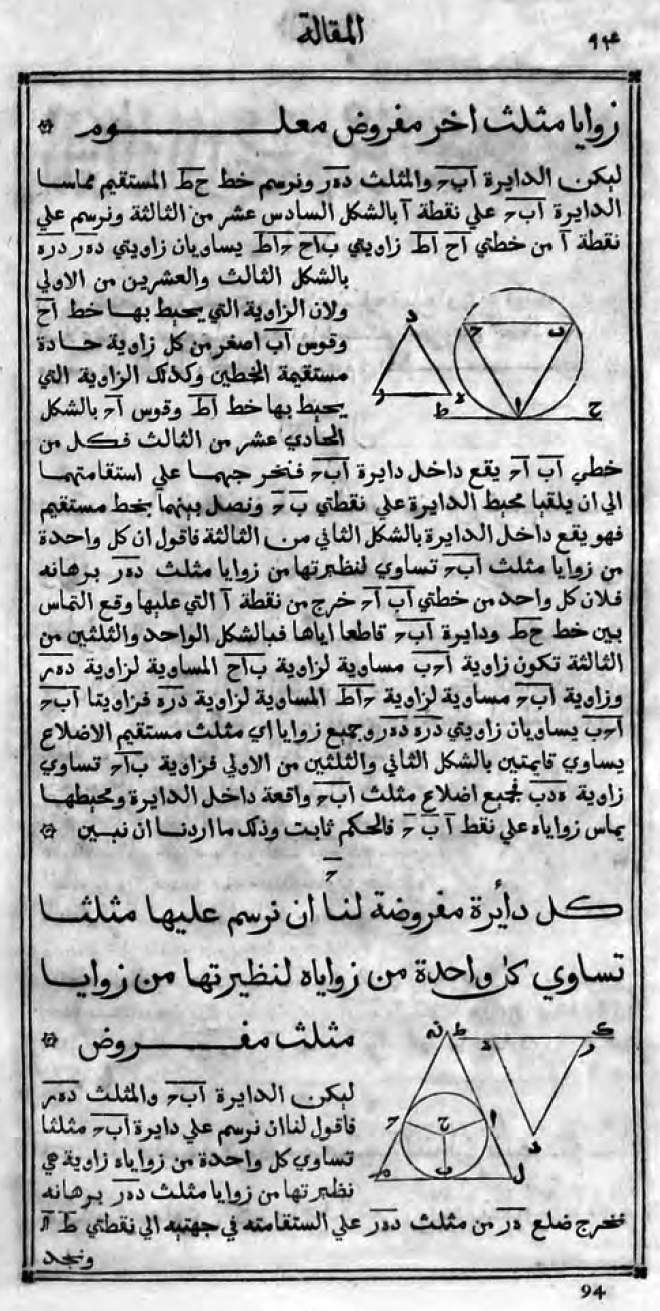 المقالة
٩٤
زوايا مثلث اخر مفروض معلوم
ليكن الدايرة ابح والمثلث دهر ونرسم خط حط المستقيم مماسا
الدايرة ابح علي نقطة ا بالشكل السادس عشر من الثالثة ونرسم علي
نقطة ا من خطتي اح اط زاويتي باح حاط يساويان زاويتي دهر دره
بالشكل الثالث والعشرين من الاولي
ولان الزاوية التي يحيط بها خط اح
وقوس اب اصغر من كل زاوية حادة
مستقيمة الخطين وكذلك الزاوية التي
يحيط بها خط اط وقوس اح بالشكل
الحادي عشر من الثالث فكل من
خطي اب اح يقع داخل دايرة ابح فنخرجهما علي استقامتهما
الي ان يلقيا محيط الدايرة علي نقطتي ب ح ونصل بينهما بخط مستقيم
فهو يقع داخل الدايرة بالشكل الثاني من الثالثة فاقول ان كل واحدة
من زوايا مثلث ابح تساوي لنظيرتها من زوايا مثلث دهر برهانه
فلان كل واحد من خطتي اب اح خرج من نقطة ا التي عليها وقع التماس
بين خط حط ودايرة ابح قاطعا اياها فبالشكل الواحد والثلثين من
الثالثة تكون زاوية احب مساوية لزاوية باح المساوية لزاوية دهر
وزاوية ابح مساوية لزاوية حاط المساوية لزاوية دره فزاويتا ابح
احب يساويان زاويتي دره دهر وجميع زوايا اي مثلث مستقيم الاضلاع
يساوي قايمتين بالشكل الثاني والثلثين من الاولي فزاوية باح تساوي
زاوية هدب فجميع اضلاع مثلث ابح واقعة داخل الدايرة ومحيطها
يماس زواياه علي نقط ا ب ح فالحكم ثابت وذلك ما اردنا ان نبين
د
ر ه
ح ب
ط ا ح
ح
كل دائرة مفروضة لنا ان نرسم عليها مثلثا
تساوي كل واحدة من زواياه لنظيرتها من زوايا
مثلث مفروض
ليكن الدايرة ابح والمثلث دهر
فاقول لنا ان نرسم علي دايرة ابح مثلثا
تساوي كل واحدة من زواياه زاوية هي
نظيرتها من زوايا مثلث دهر برهانه
نخرج ضلع هر من مثلث دهر علي الستقامته في جهتيه الي نقطتي ط ك
ونجد
ط ه ر ك
د
ح ح ا
م ب ل
94